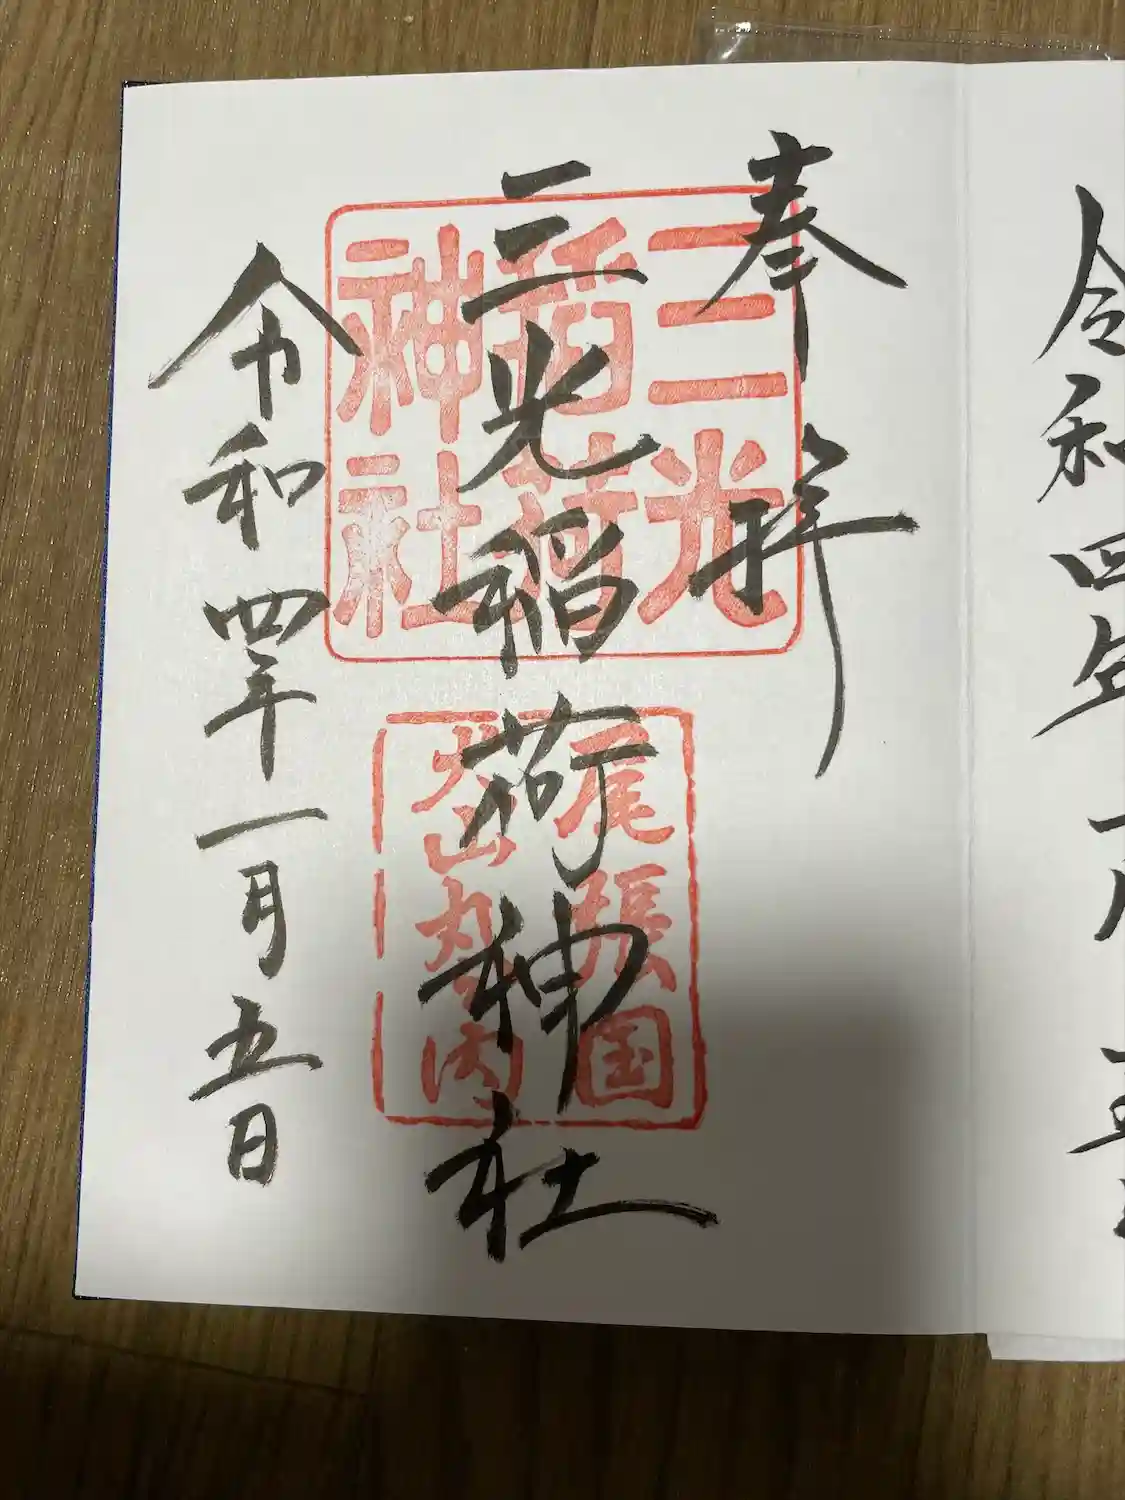 奉拝
三光稲荷神社
令和四年一月五日
三光
稲荷
神社
尾張国
犬山丸の内
令和四年一月五